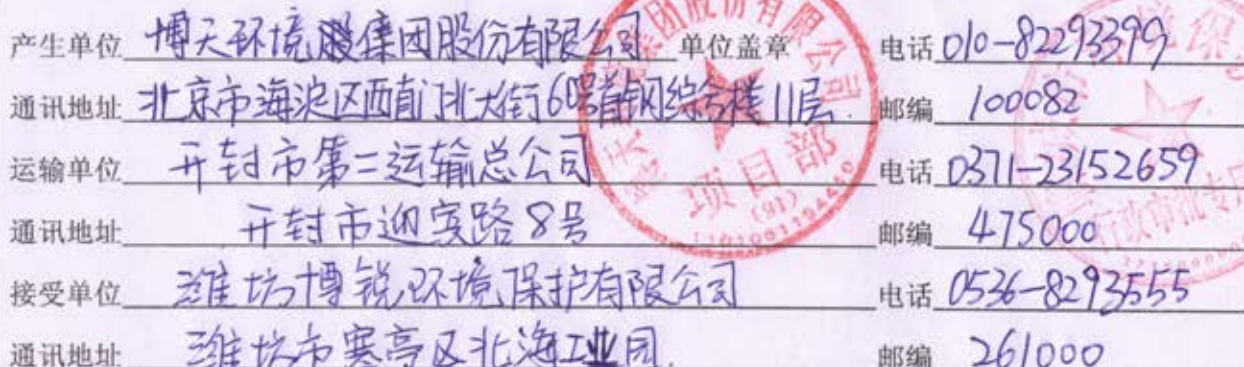 产生单位 博天环境集团股份有限公司 单位盖章 电话 010-82293399
通讯地址 北京市海淀区西直门北大街60号首钢综合楼11层. 邮编 100082
运输单位 开封市第二运输总公司 电话 0371-23152659
通讯地址 开封市迎宾路8号 邮编 475000
接受单位 潍坊博锐环境保护有限公司 电话 0536-8293555
通讯地址 潍坊市寒亭区北海工业园. 邮编 261000
集团股份有限公司
项目部
(91)
行政审批专用